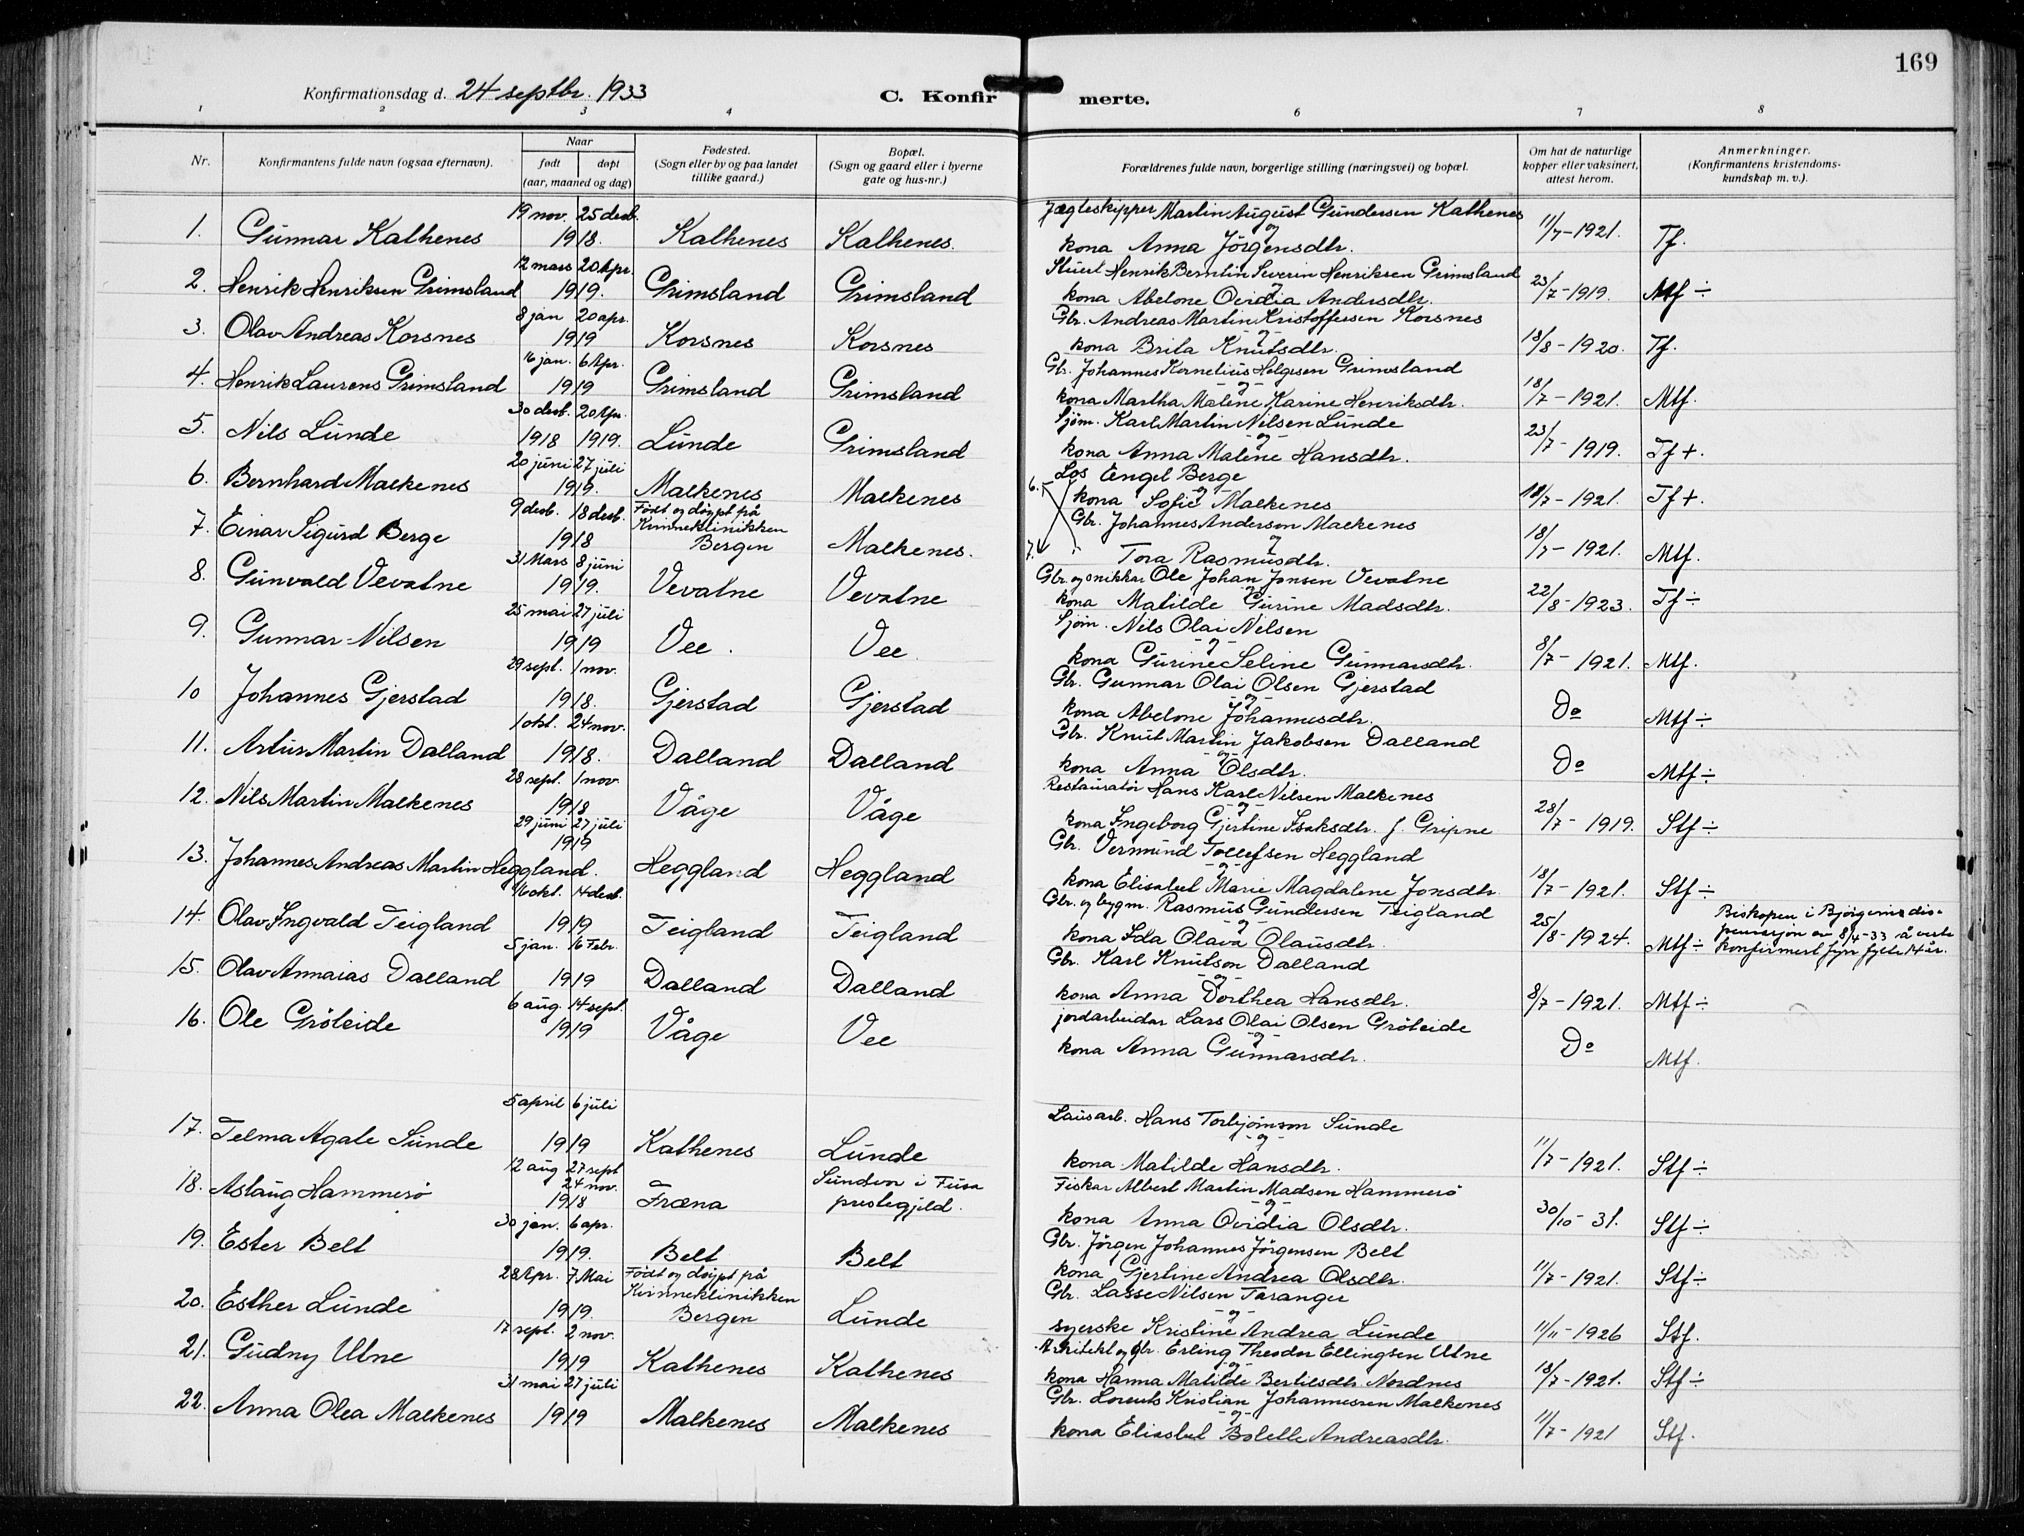 169
Konfirmationsdag d. 24 septbr. 1933
C. Konfirmerte.
1 2 3 4 5 6 7 8
Nr. Konfirmantens fulde navn (ogsaa efternavn). Naar født døpt (aar, maaned og dag) Fødested. (Sogn eller by og paa landet tillike gaard.) Bopæl. (Sogn og gaard eller i byerne gate og hus-nr.) Forældrenes fulde navn, borgerlige stilling (næringsvei) og bopæl. Om hat de naturlige kopper eller vaksinert, attest herom. Anmerkninger. (Konfirmantens kristendomskundskap m. v.).
1. Gunnar Kalhenes 19 nov. 25 desb. 1918. Kalhenes Kalhenes. Jægteskipper Martin August Gundersen Kalhenes og kona Anna Jörgensdtr. 11/7-1921. Tf.
2. Henrik Henriksen Grimsland 12 mars 20 Apr. 1919. Grimsland Grimsland Stuert Henrik Berntin Severin Henriksen Grimsland og kona Abelone Ovidia Andersdtr. 23/7-1919. Mtf ÷
3. Olav Andreas Korsnes 8 jan 20 apr. 1919 Korsnes Korsnes Gbr. Andreas Martin Kristoffersen Korsnes -og- kona Brita Knutsdtr. 18/8-1920. Tf.
4. Henrik Laurens Grimsland 16 jan. 6 Apr. 1919 Grimsland Grimsland Gbr. Johannes Kornelius Helgesen Grimsland -og- kona Martha Malene Karine Henriksdtr. 18/7-1921. Mtf.
5. Nils Lunde 30 desb. 20 Apr. 1918 1919. Lunde Grimsland Sjöm. Karl Martin Nilsen Lunde -og- kona Anna Malene Hansdtr. 23/7-1919. Tf +.
6. Bernhard Malkenes 20 juni 27 juli 1919. Malkenes Malkenes 6. Los Engel Berge -og- kona Sofie Malkenes 18/7-1921. Tf +
7. Einar Sigurd Berge 9 desb. 18 desb. 1918 Födt og döypt på Kvinneklinikken Bergen Malkenes. 7. Gbr. Johannes Anderson Malkenes og Tora Rasmusdtr. 18/7-1921. Mtf.
8. Gunvald Vevatne 31 Mars 8 juni 1919. Vevatne Vevatne Gbr. og snikkar Ole Johan Jonsen Vevatne og kona Matilde Gurine Madsdtr. 22/8-1923. Tf ÷
9. Gunnar Nilsen 25 mai 27 juli 1919 Vee. Vee. Sjöm. Nils Olai Nilsen -og- kona Gurine Seline Gunnarsdtr. 8/7-1921. Mtf.
10 Johannes Gjerstad 29 sept. 1 nov. 1918. Gjerstad Gjerstad Gbr. Gunnar Olai Olsen Gjerstad -og- kona Abelone Johannesdtr. Do Mtf ÷
11. Artur Martin Dalland 1 okt. 24 nov. 1918. Dalland Dalland Gbr. Knut Martin Jakobsen Dalland -og- kona Anna Olsdtr. Do Mtf ÷
12. Nils Martin Malkenes 28 sept. 1 nov. 1918 Våge Våge Restauratør Hans Karl Nilsen Malkenes -og- kona Ingeborg Gjertine Isaksdtr. f. Gripne 28/7-1919. Stf ÷
13. Johannes Andreas Martin Heggland. 29 juni 27 juli 1919 Heggland Heggland Gbr. Vermund Tollefsen Heggland -og- kona Elisabet Marie Magdalene Jonsdtr. 18/7-1921. Stf ÷
14. Olav Ingvald Teigland 16 okt. 14 desb. 1919 Teigland Teigland Gbr. og bygm. Rasmus Gundersen Teigland -og- kona Ida Olava Olausdtr. 25/8-1924. Mtf ÷ Biskopen i Bjørgvins dispensasjon av 8/4-33 å verte konfirmert fyrr fylte 14 år.
15. Olav Annaias Dalland 5 jan. 16 Febr. 1919 Dalland Dalland Gbr. Karl Knutson Dalland -og- kona Anna Dorthea Hansdtr. 8/7-1921. Mtf ÷
16. Ole Gröteide 6 aug. 14 sept. 1919 Våge Vee jordarbeidar Lars Olai Olsen Gröteide -og- kona Anna Gunnarsdtr. Do Mtf.
17. Telma Agate Sunde 5 april 6 juli 1919 Kalhenes Lunde Lausarb. Hans Torbjörnson Sunde -og- kona Matilde Hansdtr. 11/7-1921. Stf ÷
18. Aslaug Hammersö 12 aug 27 sept 24 nov. 1918 Fræna Sundvor i Fusa prestegjeld. Fiskar Albert Martin Madsen Hammersö -og- kona Anna Ovidia Olsdtr. 30/10-31. Stf ÷
19. Ester Belt 30 jan. 6 apr. 1919. Belt Belt Gbr. Jörgen Johannes Jörgensen Belt kona Gjertine Andrea Olsdtr. 11/7-1921. Stf ÷
20. Esther Lunde 28 Apr. 7 Mai 1919. Födt og döypt på Kvinneklinikken Bergen Lunde Gbr. Lasse Nilsen Taranger -og- syerske Kristine Andrea Lunde 11/11-1926 Stf.
21. Gudny Utne 17 sept. 2 nov. 1919 Kalhenes Kalhenes Arkitekt og gbr. Erling Theodor Ellingsen Utne -og- kona Hanna Matilde Bertilsdtr Nordnes 18/7-1921. Stf ÷
22. Anna Olea Malkenes 31 mai 27 juli 1919 Malkenes Malkenes Gbr. Lorents Kristian Johannessen Malkenes -og- kona Elisabet Bolette Andreasdtr. 11/7-1921 Stf.